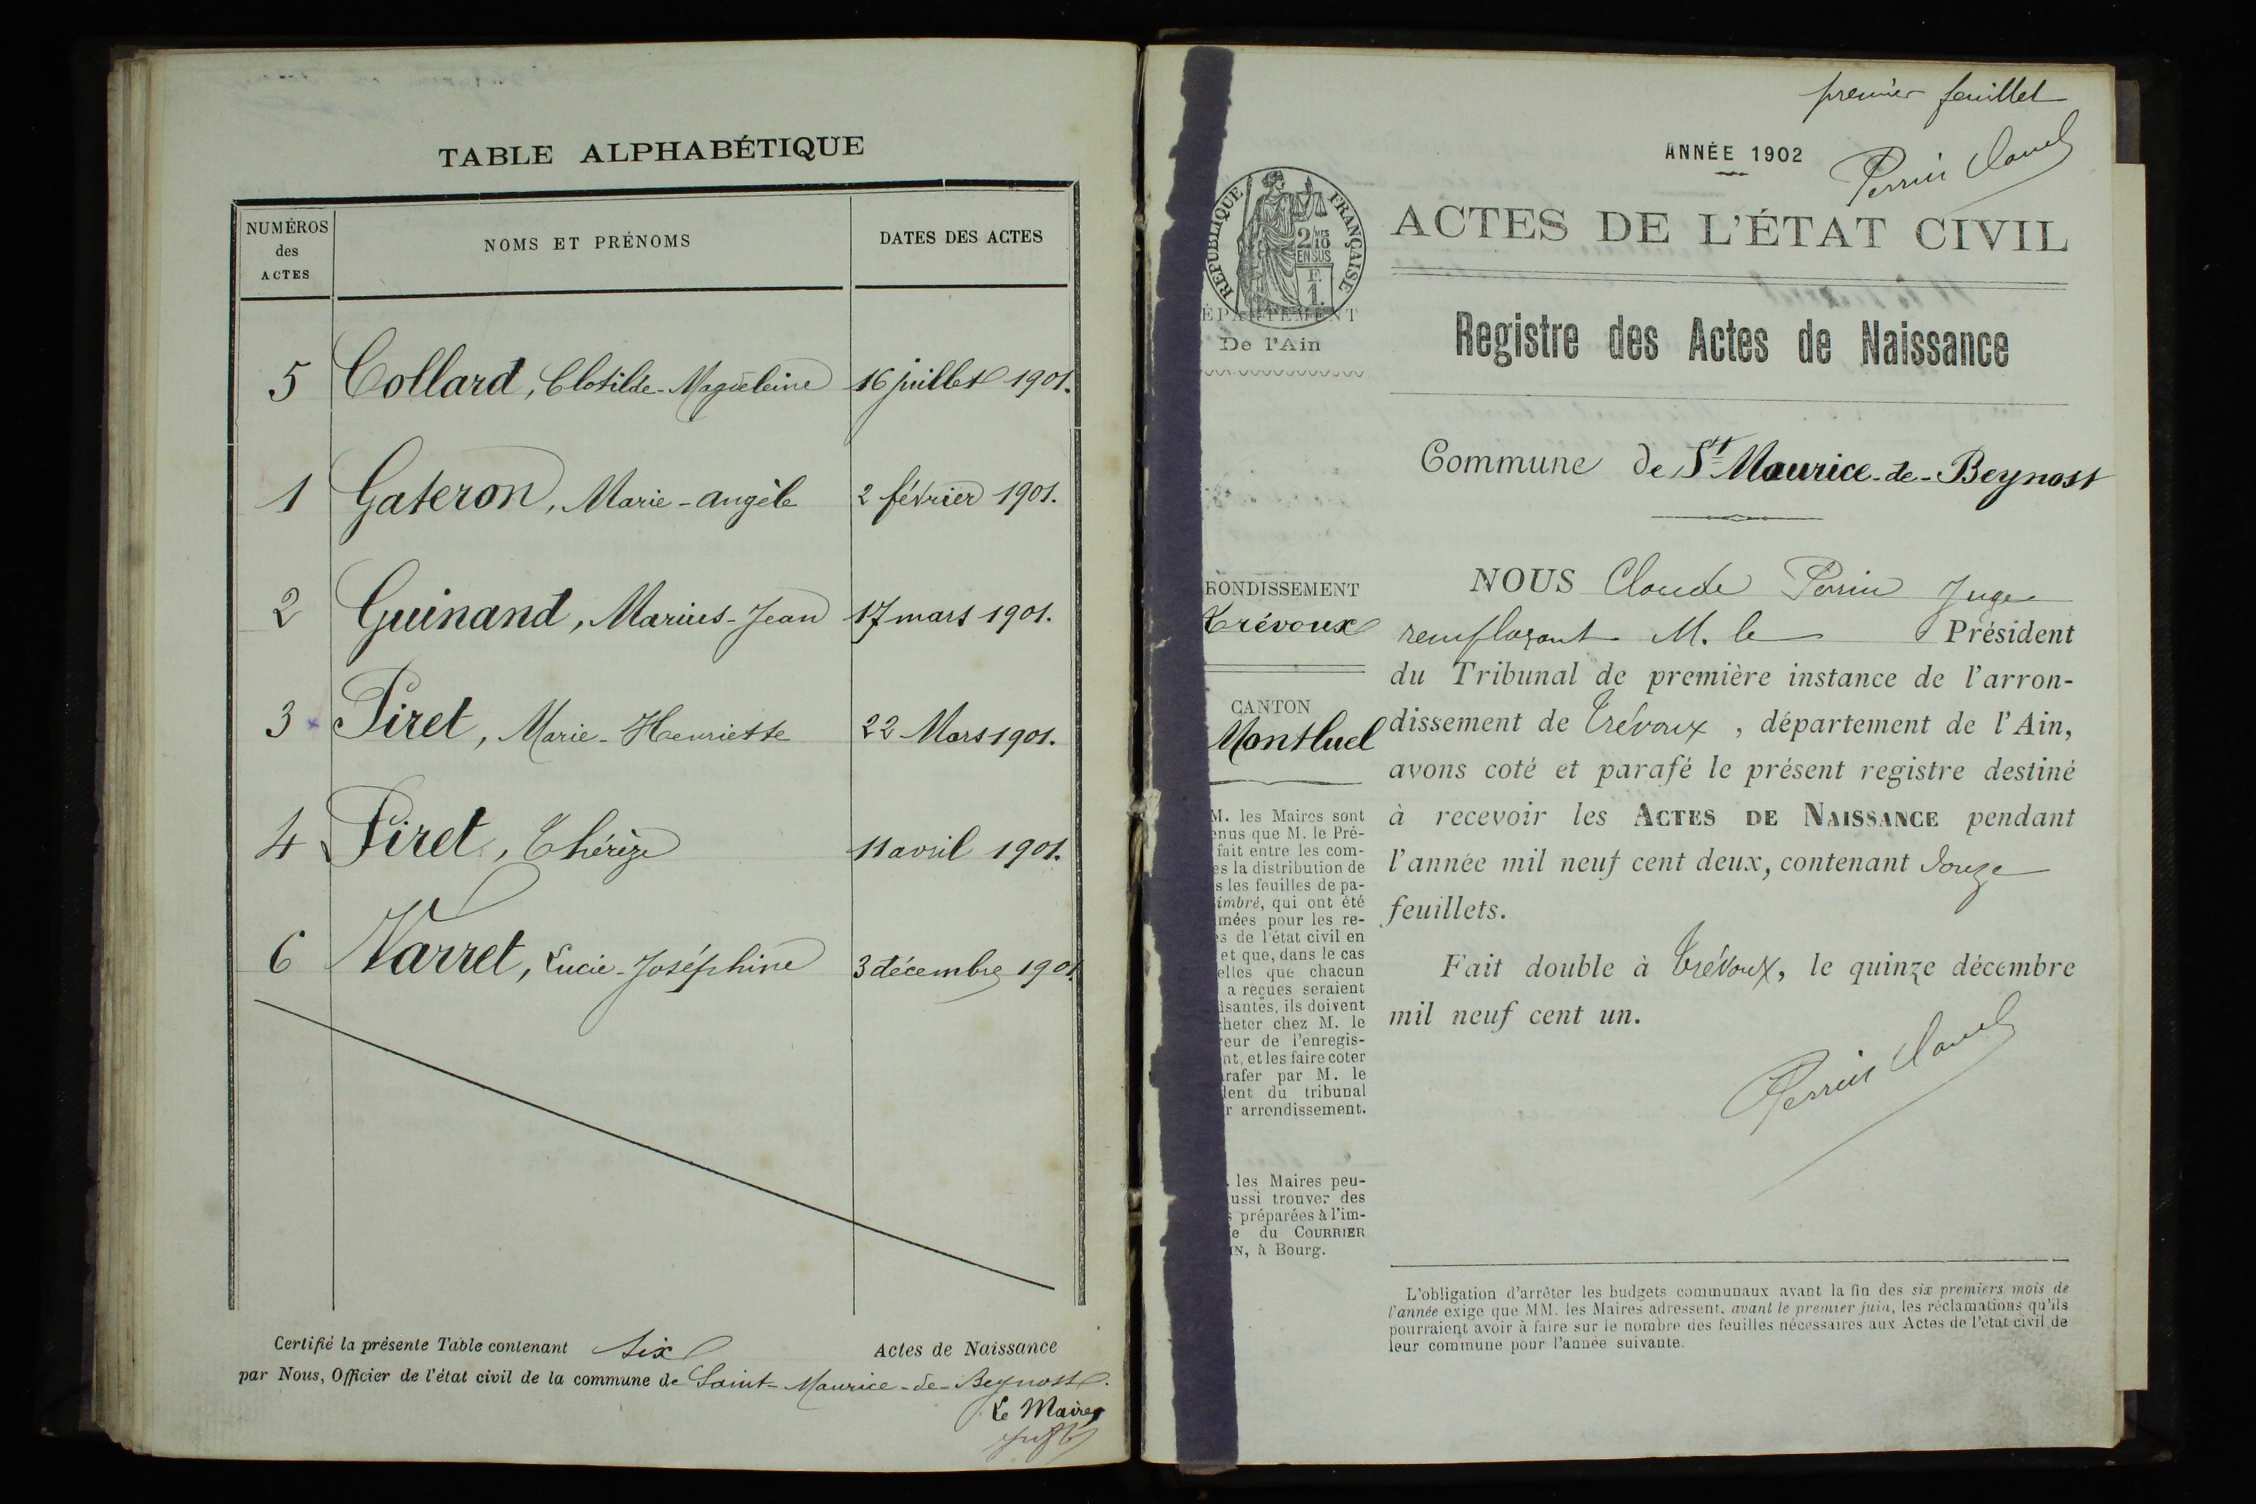 TABLE ALPHABÉTIQUE
NUMÉROS des ACTES NOMS ET PRÉNOMS DATES DES ACTES
5 Collard, Clotilde-Magdeleine 16 juillet 1901.
1 Gateron, Marie-angèle 2 février 1901.
2 Guinand, Marius-Jean 17 mars 1901.
3 Piret, Marie-Henriette 22 Mars 1901.
4 Piret, Thérèze 11 avril 1901.
6 Varret, Lucie-Joséphine 3 décembre 1901
Certifié la présente Table contenant six Actes de Naissance
par Nous, Officier de l'état civil de la commune de Saint-Maurice-de-Beynost.
Le Maire,
premier feuillet
ANNÉE 1902
Perrin Claude
RÉPUBLIQUE FRANÇAISE
2/10 EN SUS
F. 1.
ACTES DE L'ÉTAT CIVIL
ÉPARTEMENT
De l'Ain
Registre des Actes de Naissance
Commune de St-Maurice-de-Beynost
RONDISSEMENT
Trévoux
CANTON
Montluel
M. les Maires sont
enus que M. le Pré-
fait entre les com-
es la distribution de
s les feuilles de pa-
imbré, qui ont été
mées pour les re-
s de l'état civil en
et que, dans le cas
elles que chacun
a reçues seraient
isantes, ils doivent
heter chez M. le
eur de l'enregis-
nt, et les faire coter
rafer par M. le
dent du tribunal
r arrondissement.
les Maires peu-
ussi trouver des
s préparées à l'im-
e du COURRIER
IN, à Bourg.
NOUS Claude Perrin Juge
remplaçant M. le Président
du Tribunal de première instance de l'arron-
dissement de Trévoux, département de l'Ain,
avons coté et parafé le présent registre destiné
à recevoir les ACTES DE NAISSANCE pendant
l'année mil neuf cent deux, contenant douze
feuillets.
Fait double à Trévoux, le quinze décembre
mil neuf cent un.
Perrin Claude
L'obligation d'arrêter les budgets communaux avant la fin des six premiers mois de
l'année exige que MM. les Maires adressent, avant le premier juin, les réclamations qu'ils
pourraient avoir à faire sur le nombre des feuilles nécessaires aux Actes de l'état civil de
leur commune pour l'année suivante.